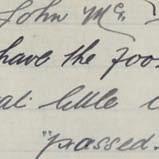 John Mc
have the foo
at little
"passed.